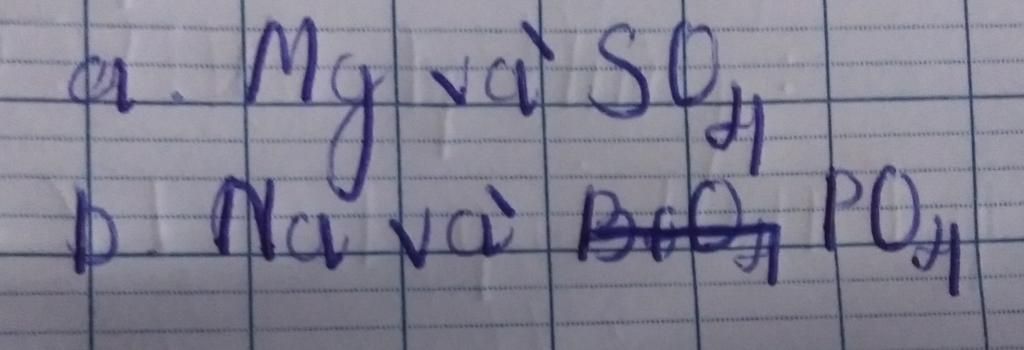 a. Mg và SO₄
b. Na và PO₄